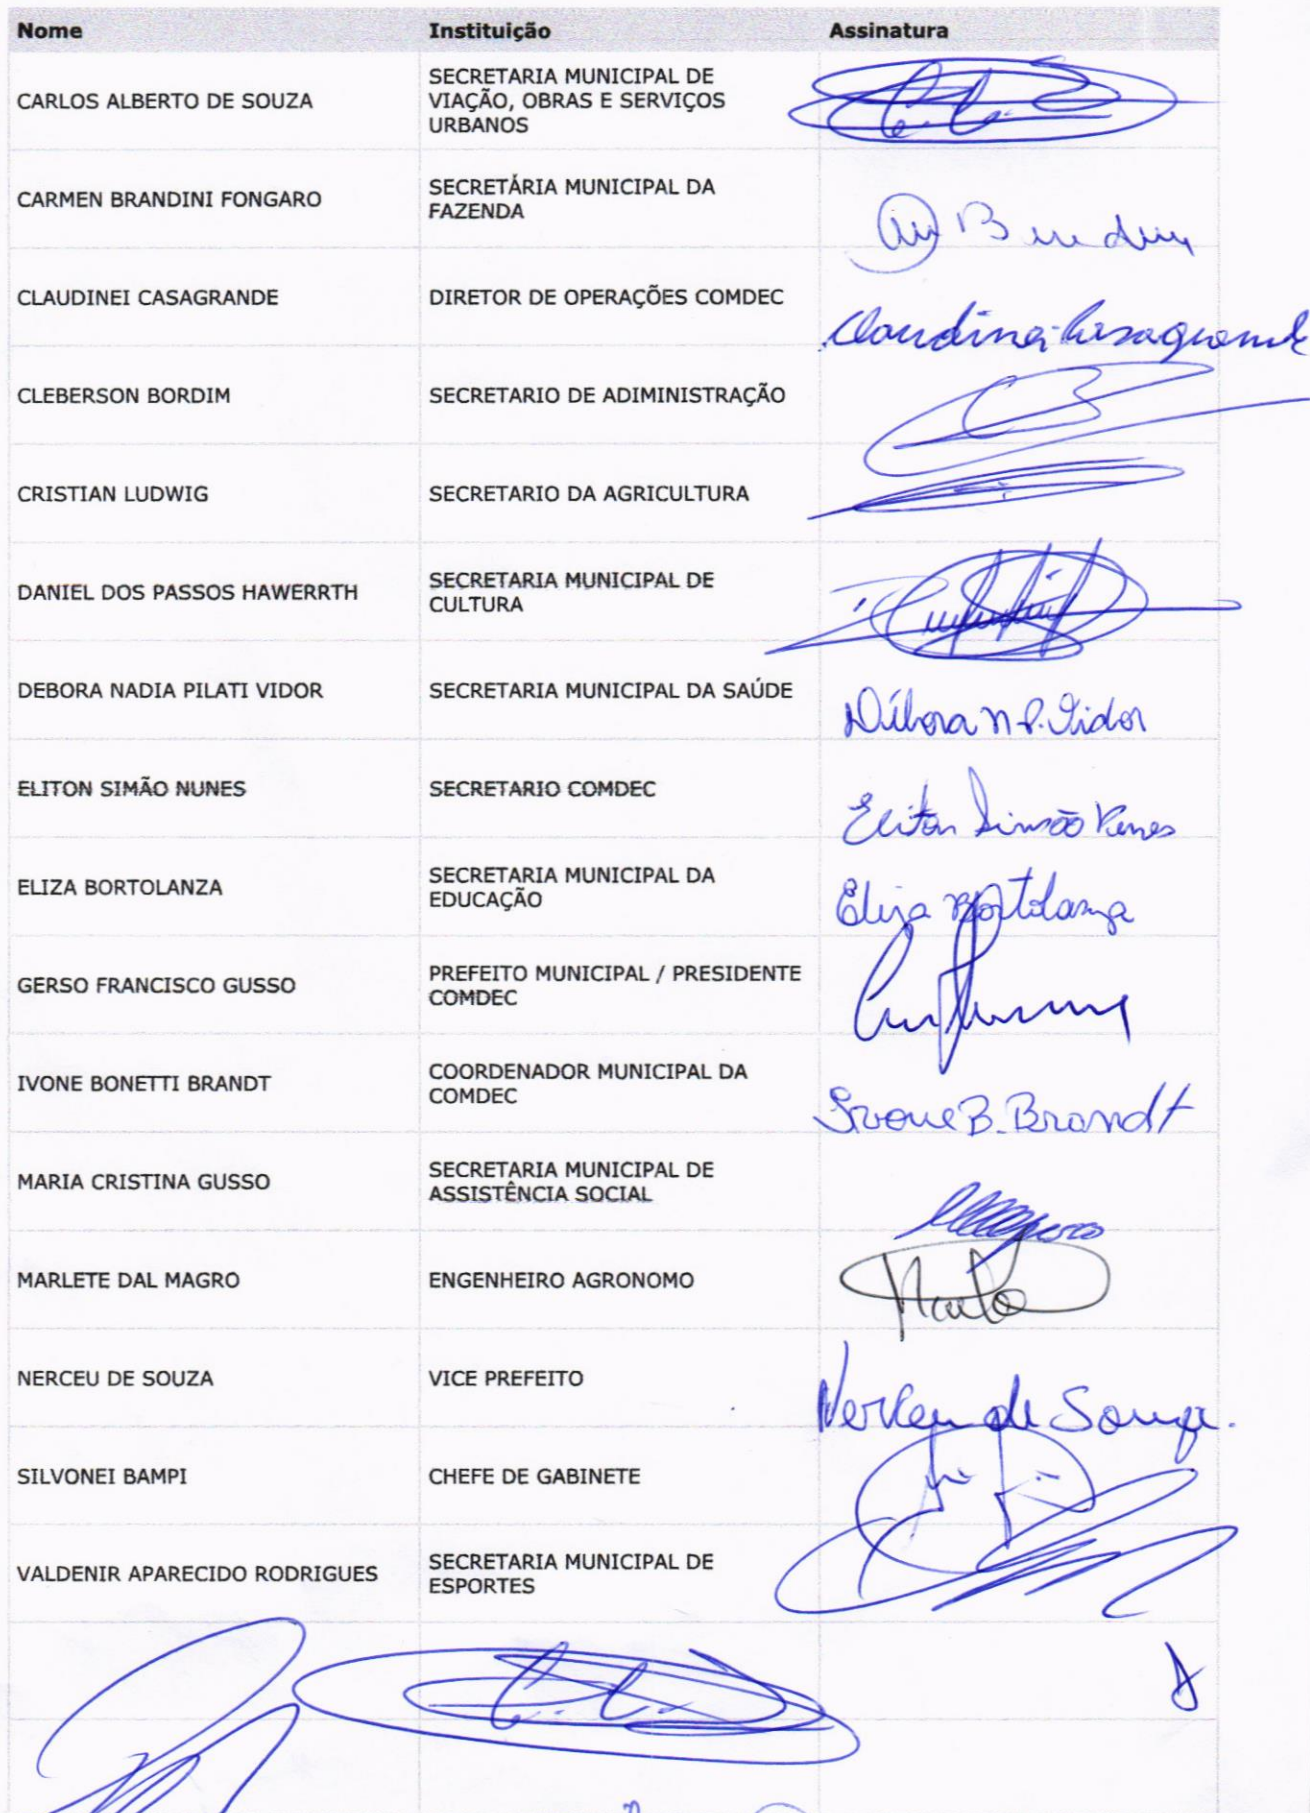 Nome Instituição Assinatura
CARLOS ALBERTO DE SOUZA
SECRETARIA MUNICIPAL DE
VIAÇÃO, OBRAS E SERVIÇOS
URBANOS
CARMEN BRANDINI FONGARO
SECRETÁRIA MUNICIPAL DA
FAZENDA
CLAUDINEI CASAGRANDE DIRETOR DE OPERAÇÕES COMDEC
Claudinei Casagrande
CLEBERSON BORDIM SECRETARIO DE ADIMINISTRAÇÃO
CRISTIAN LUDWIG SECRETARIO DA AGRICULTURA
DANIEL DOS PASSOS HAWERRTH
SECRETARIA MUNICIPAL DE
CULTURA
DEBORA NADIA PILATI VIDOR SECRETARIA MUNICIPAL DA SAÚDE
Débora N P. Vidor
ELITON SIMÃO NUNES SECRETARIO COMDEC
Eliton Simão Nunes
ELIZA BORTOLANZA
SECRETARIA MUNICIPAL DA
EDUCAÇÃO
Eliza Bortolanza
GERSO FRANCISCO GUSSO
PREFEITO MUNICIPAL / PRESIDENTE
COMDEC
IVONE BONETTI BRANDT
COORDENADOR MUNICIPAL DA
COMDEC
Ivone B. Brandt
MARIA CRISTINA GUSSO
SECRETARIA MUNICIPAL DE
ASSISTÊNCIA SOCIAL
MARLETE DAL MAGRO ENGENHEIRO AGRONOMO
NERCEU DE SOUZA VICE PREFEITO
Nerceu de Souza.
SILVONEI BAMPI CHEFE DE GABINETE
VALDENIR APARECIDO RODRIGUES
SECRETARIA MUNICIPAL DE
ESPORTES